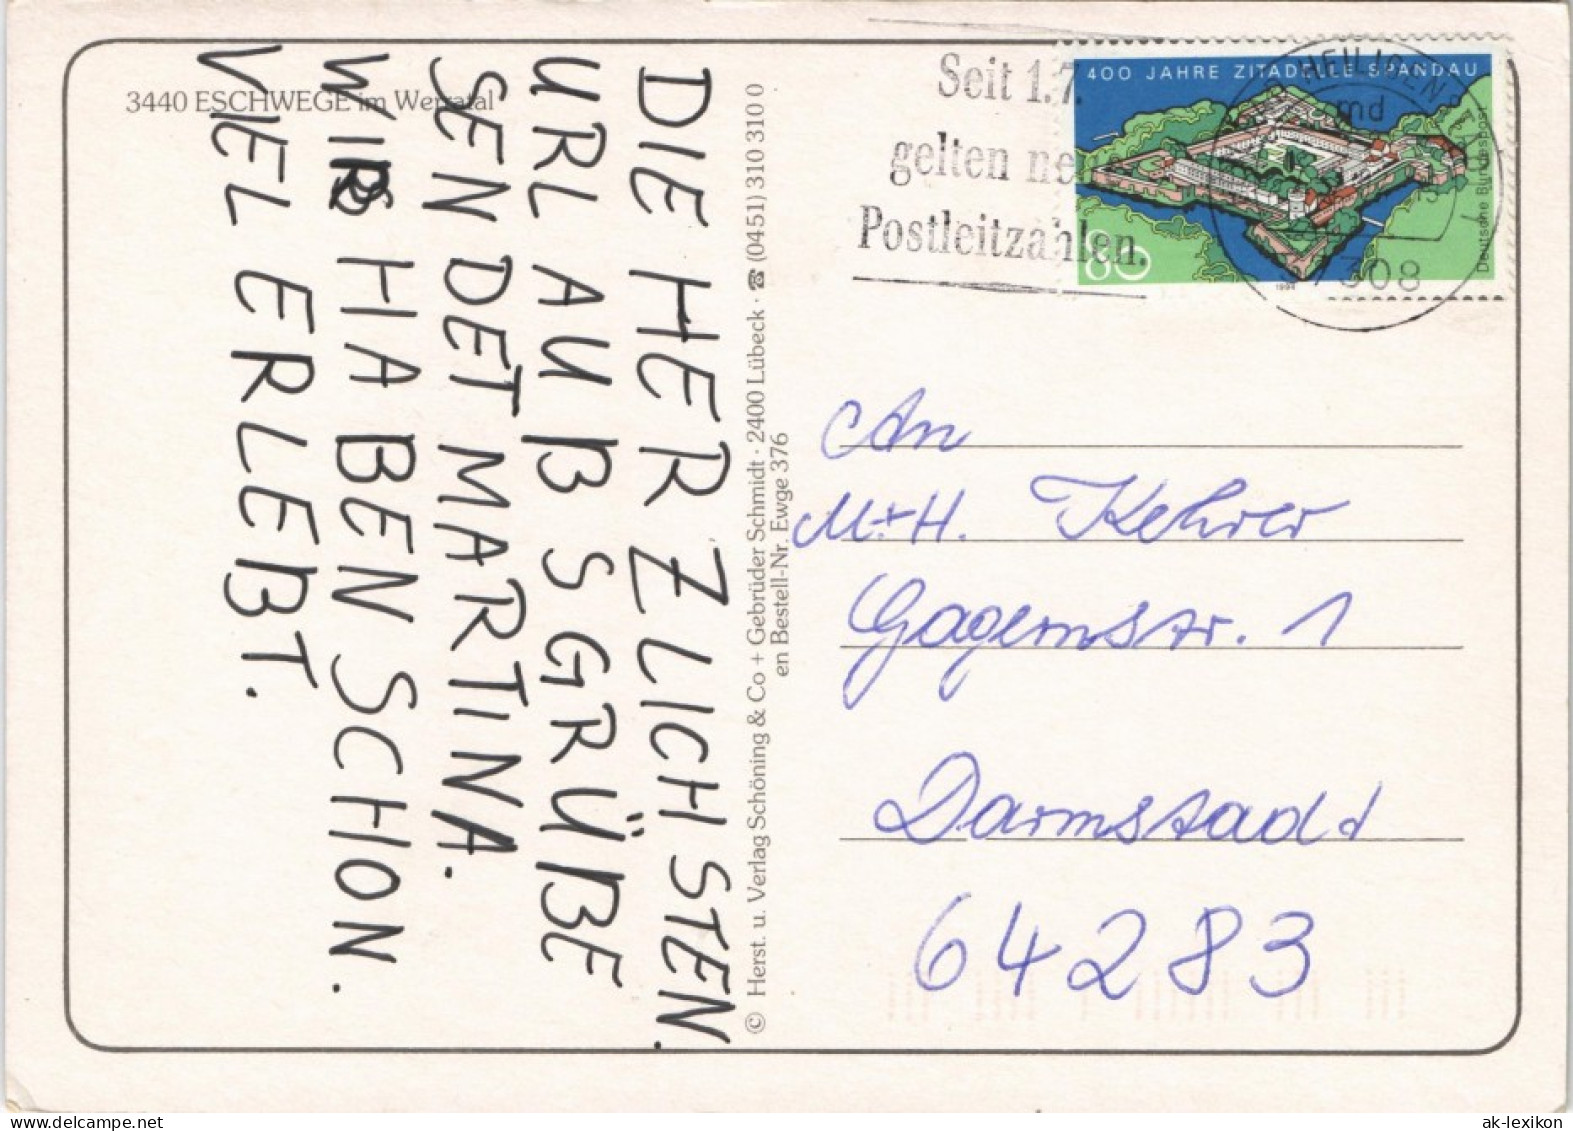 3440 ESCHWEGE im Werratal
DIE HER ZLICHSTEN
URL AUß SGRÜßE
SEN DET MARTINA.
WIR HABEN SCHON.
VIEL ERLEBT.
© Herst. u. Verlag Schöning & Co + Gebrüder Schmidt · 2400 Lübeck · ☎ (0451) 310 310 0
en Bestell-Nr. Ewge 376
Seit 1.7.
gelten
Postleitzahlen.
400 JAHRE ZITADELLE SPANDAU
80
Deutsche Bundespost
md
37308
An
M.+H. Kehrer
Gagernstr. 1
Darmstadt
64283
ak-lexikon